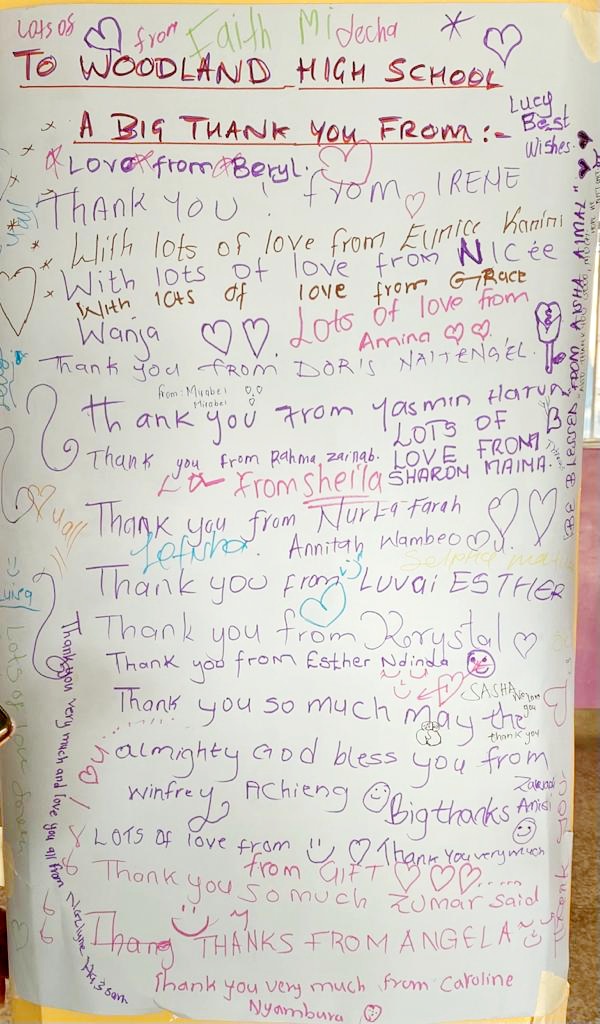 LOTS OF from Faith Midecha
TO WOODLAND HIGH SCHOOL
A BIG THANK YOU FROM :-
Lucy
Best
Wishes.
Love from Beryl.
THANK YOU! from IRENE
With lots of love from Eunice Kanini
With lots of love from NICee
With lots of love from GRace
Wanja
Lots of love from
Amina
Thank you from DORIS NAITENGEL.
from: Mirabel
Mirabel
thank you from Yasmin Harun
LOTS OF
LOVE FROM
SHARON MAINA.
Thank you from Rahma zainab.
from sheila
Thank you from Nurta Farah
Annitah Wambeo
Thank you from LUVai ESTHER
Thank you from Krystal
Thank you from Esther Ndinda
SASHA
thank you
Thank you so much may the
almighty God bless you from
Winfrey Achieng
Big thanks
LOTS OF love from
Thank You very much
from GIFT
Thank you so much Zumar said
Thang THANKS FROM ANGELA
Thank you very much from Caroline
Nyambura
Thank you very much and love you all from
"BE BLESSED FROM AISHA AIMAL"
Thank you